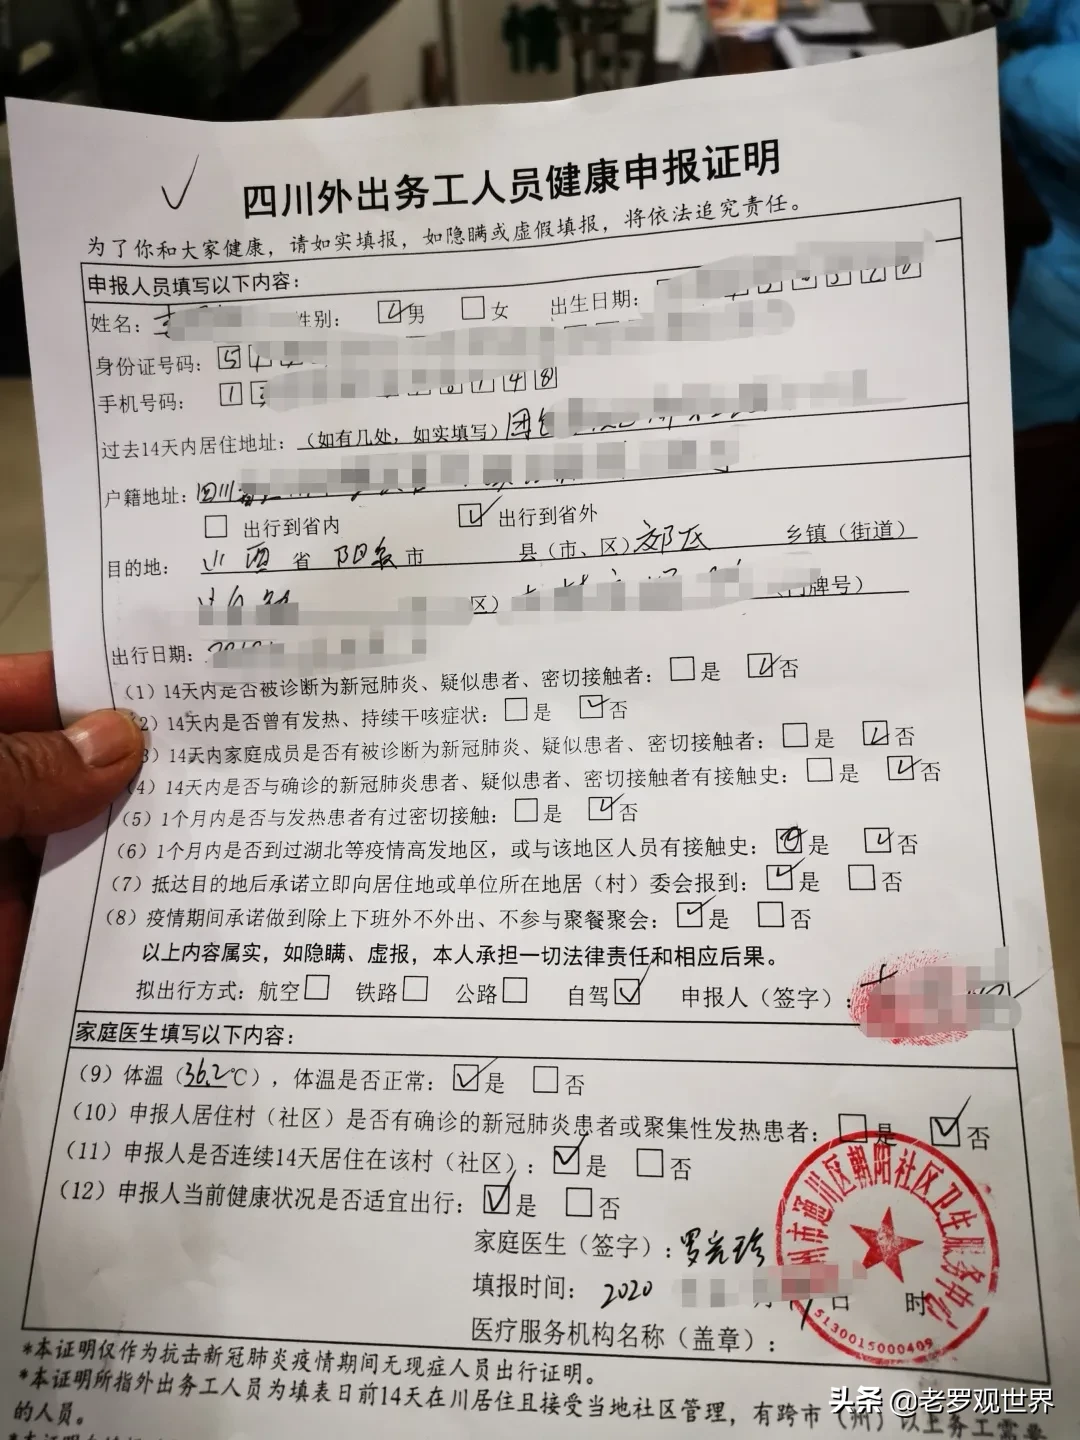 四川外出务工人员健康申报证明
为了你和大家健康，请如实填报，如隐瞒或虚假填报，将依法追究责任。
申报人员填写以下内容：
姓名： 性别： 男 女 出生日期：
身份证号码： 5
手机号码： 1 1 4 8
过去14天内居住地址：（如有几处，如实填写）
户籍地址：四川
出行到省内 出行到省外
目的地： 山西 省 阳泉 市 县（市、区）郊区 乡镇（街道）
区） 门牌号）
出行日期：
（1）14天内是否被诊断为新冠肺炎、疑似患者、密切接触者： 是 否
2）14天内是否曾有发热、持续干咳症状： 是 否
3）14天内家庭成员是否有被诊断为新冠肺炎、疑似患者、密切接触者： 是 否
(4）14天内是否与确诊的新冠肺炎患者、疑似患者、密切接触者有接触史： 是 否
（5）1个月内是否与发热患者有过密切接触： 是 否
（6）1个月内是否到过湖北等疫情高发地区，或与该地区人员有接触史： 是 否
（7）抵达目的地后承诺立即向居住地或单位所在地居（村）委会报到： 是 否
（8）疫情期间承诺做到除上下班外不外出、不参与聚餐聚会： 是 否
以上内容属实，如隐瞒、虚报，本人承担一切法律责任和相应后果。
拟出行方式：航空 铁路 公路 自驾 申报人（签字）：
家庭医生填写以下内容：
（9）体温（36.2℃），体温是否正常： 是 否
（10）申报人居住村（社区）是否有确诊的新冠肺炎患者或聚集性发热患者： 是 否
（11）申报人是否连续14天居住在该村（社区）： 是 否
（12）申报人当前健康状况是否适宜出行： 是 否
家庭医生（签字）：
填报时间： 2020 月 日 时
医疗服务机构名称（盖章）：
州市通川区朝阳社区卫生服务中心
5130015000409
*本证明仅作为抗击新冠肺炎疫情期间无现症人员出行证明。
*本证明所指外出务工人员为填表日前14天在川居住且接受当地社区管理，有跨市（州）以上务工需要
的人员。
头条 @老罗观世界